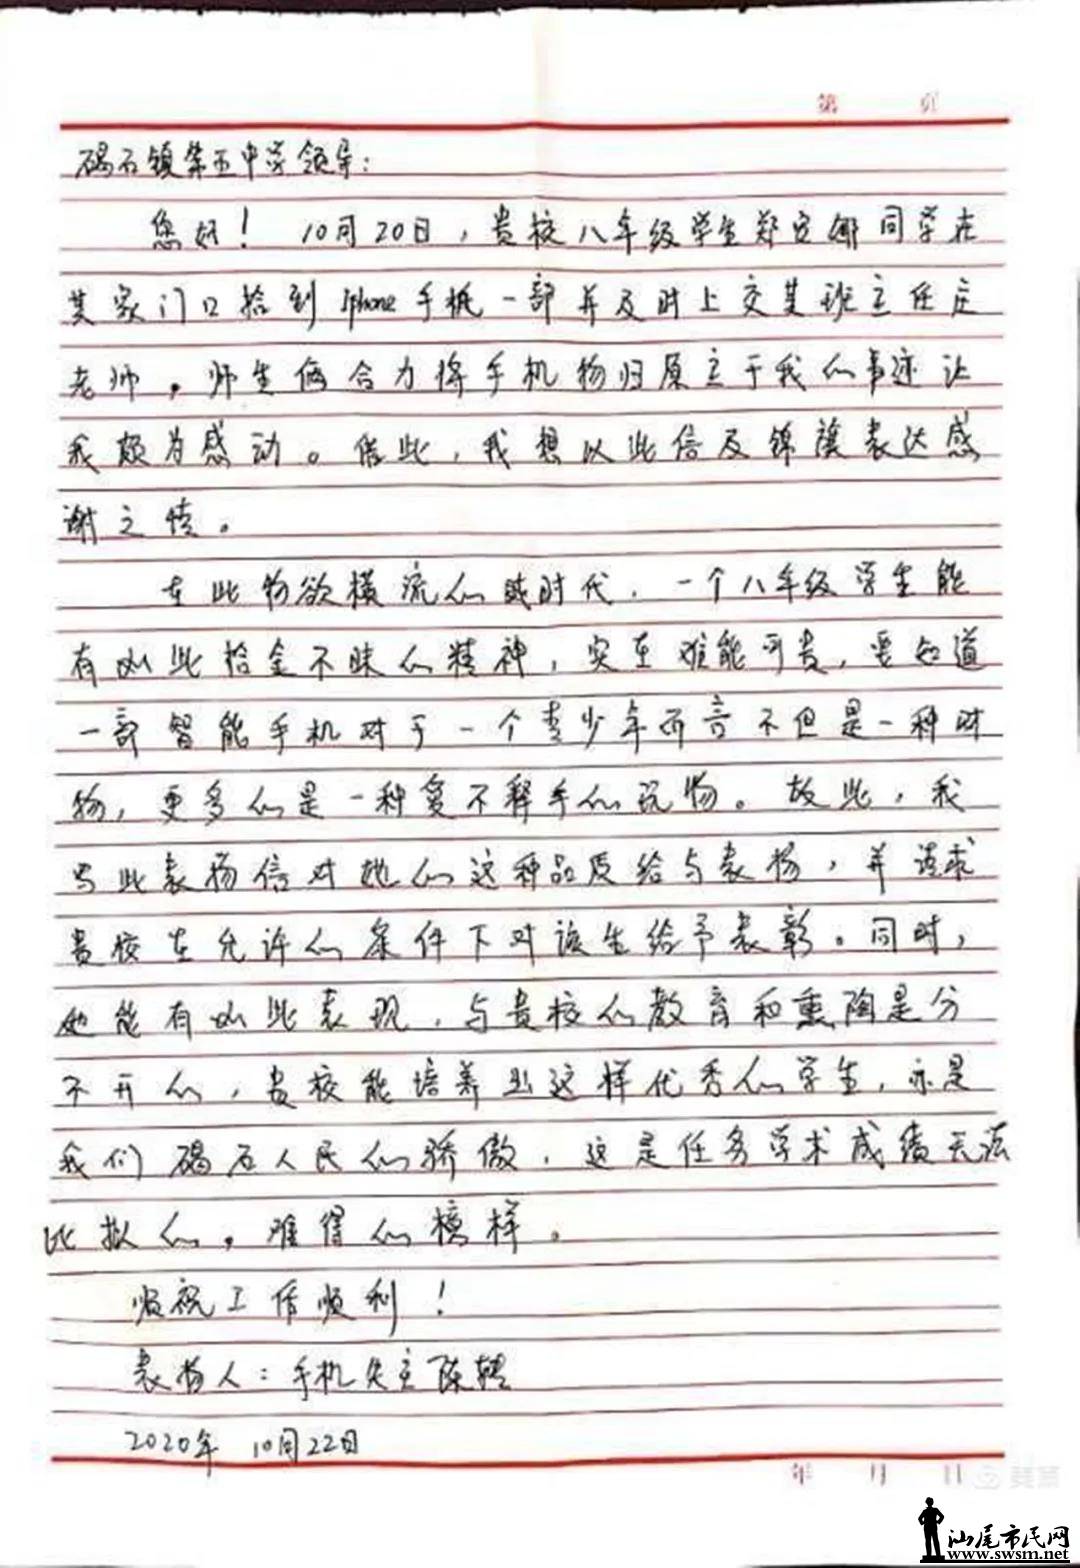 第 页
碣石镇第五中学领导：
您好！10月20日，贵校八年级学生郑安娜同学在
其家门口拾到Iphone手机一部并及时上交其班主任庄
老师。师生俩合力将手机物归原主于我的事迹让
我颇为感动。借此，我想以此信及锦旗表达感
谢之情。
在此物欲横流的时代，一个八年级学生能
有如此拾金不昧的精神，实在难能可贵，要知道
一部智能手机对于一个青少年而言不但是一种财
物，更多的是一种爱不释手的玩物。故此，我
写此表扬信对她的这种品质给与表扬，并请求
贵校在允许的条件下对该生给予表彰。同时，
她能有如此表现，与贵校的教育和熏陶是分
不开的，贵校能培养出这样优秀的学生，亦是
我们碣石人民的骄傲，这是任务学术成绩无法
比拟的，难得的榜样。
顺祝工作顺利！
表扬人：手机失主陈
2020年 10月22日
年 月 日
美篇
汕尾市民网
www.swsm.net